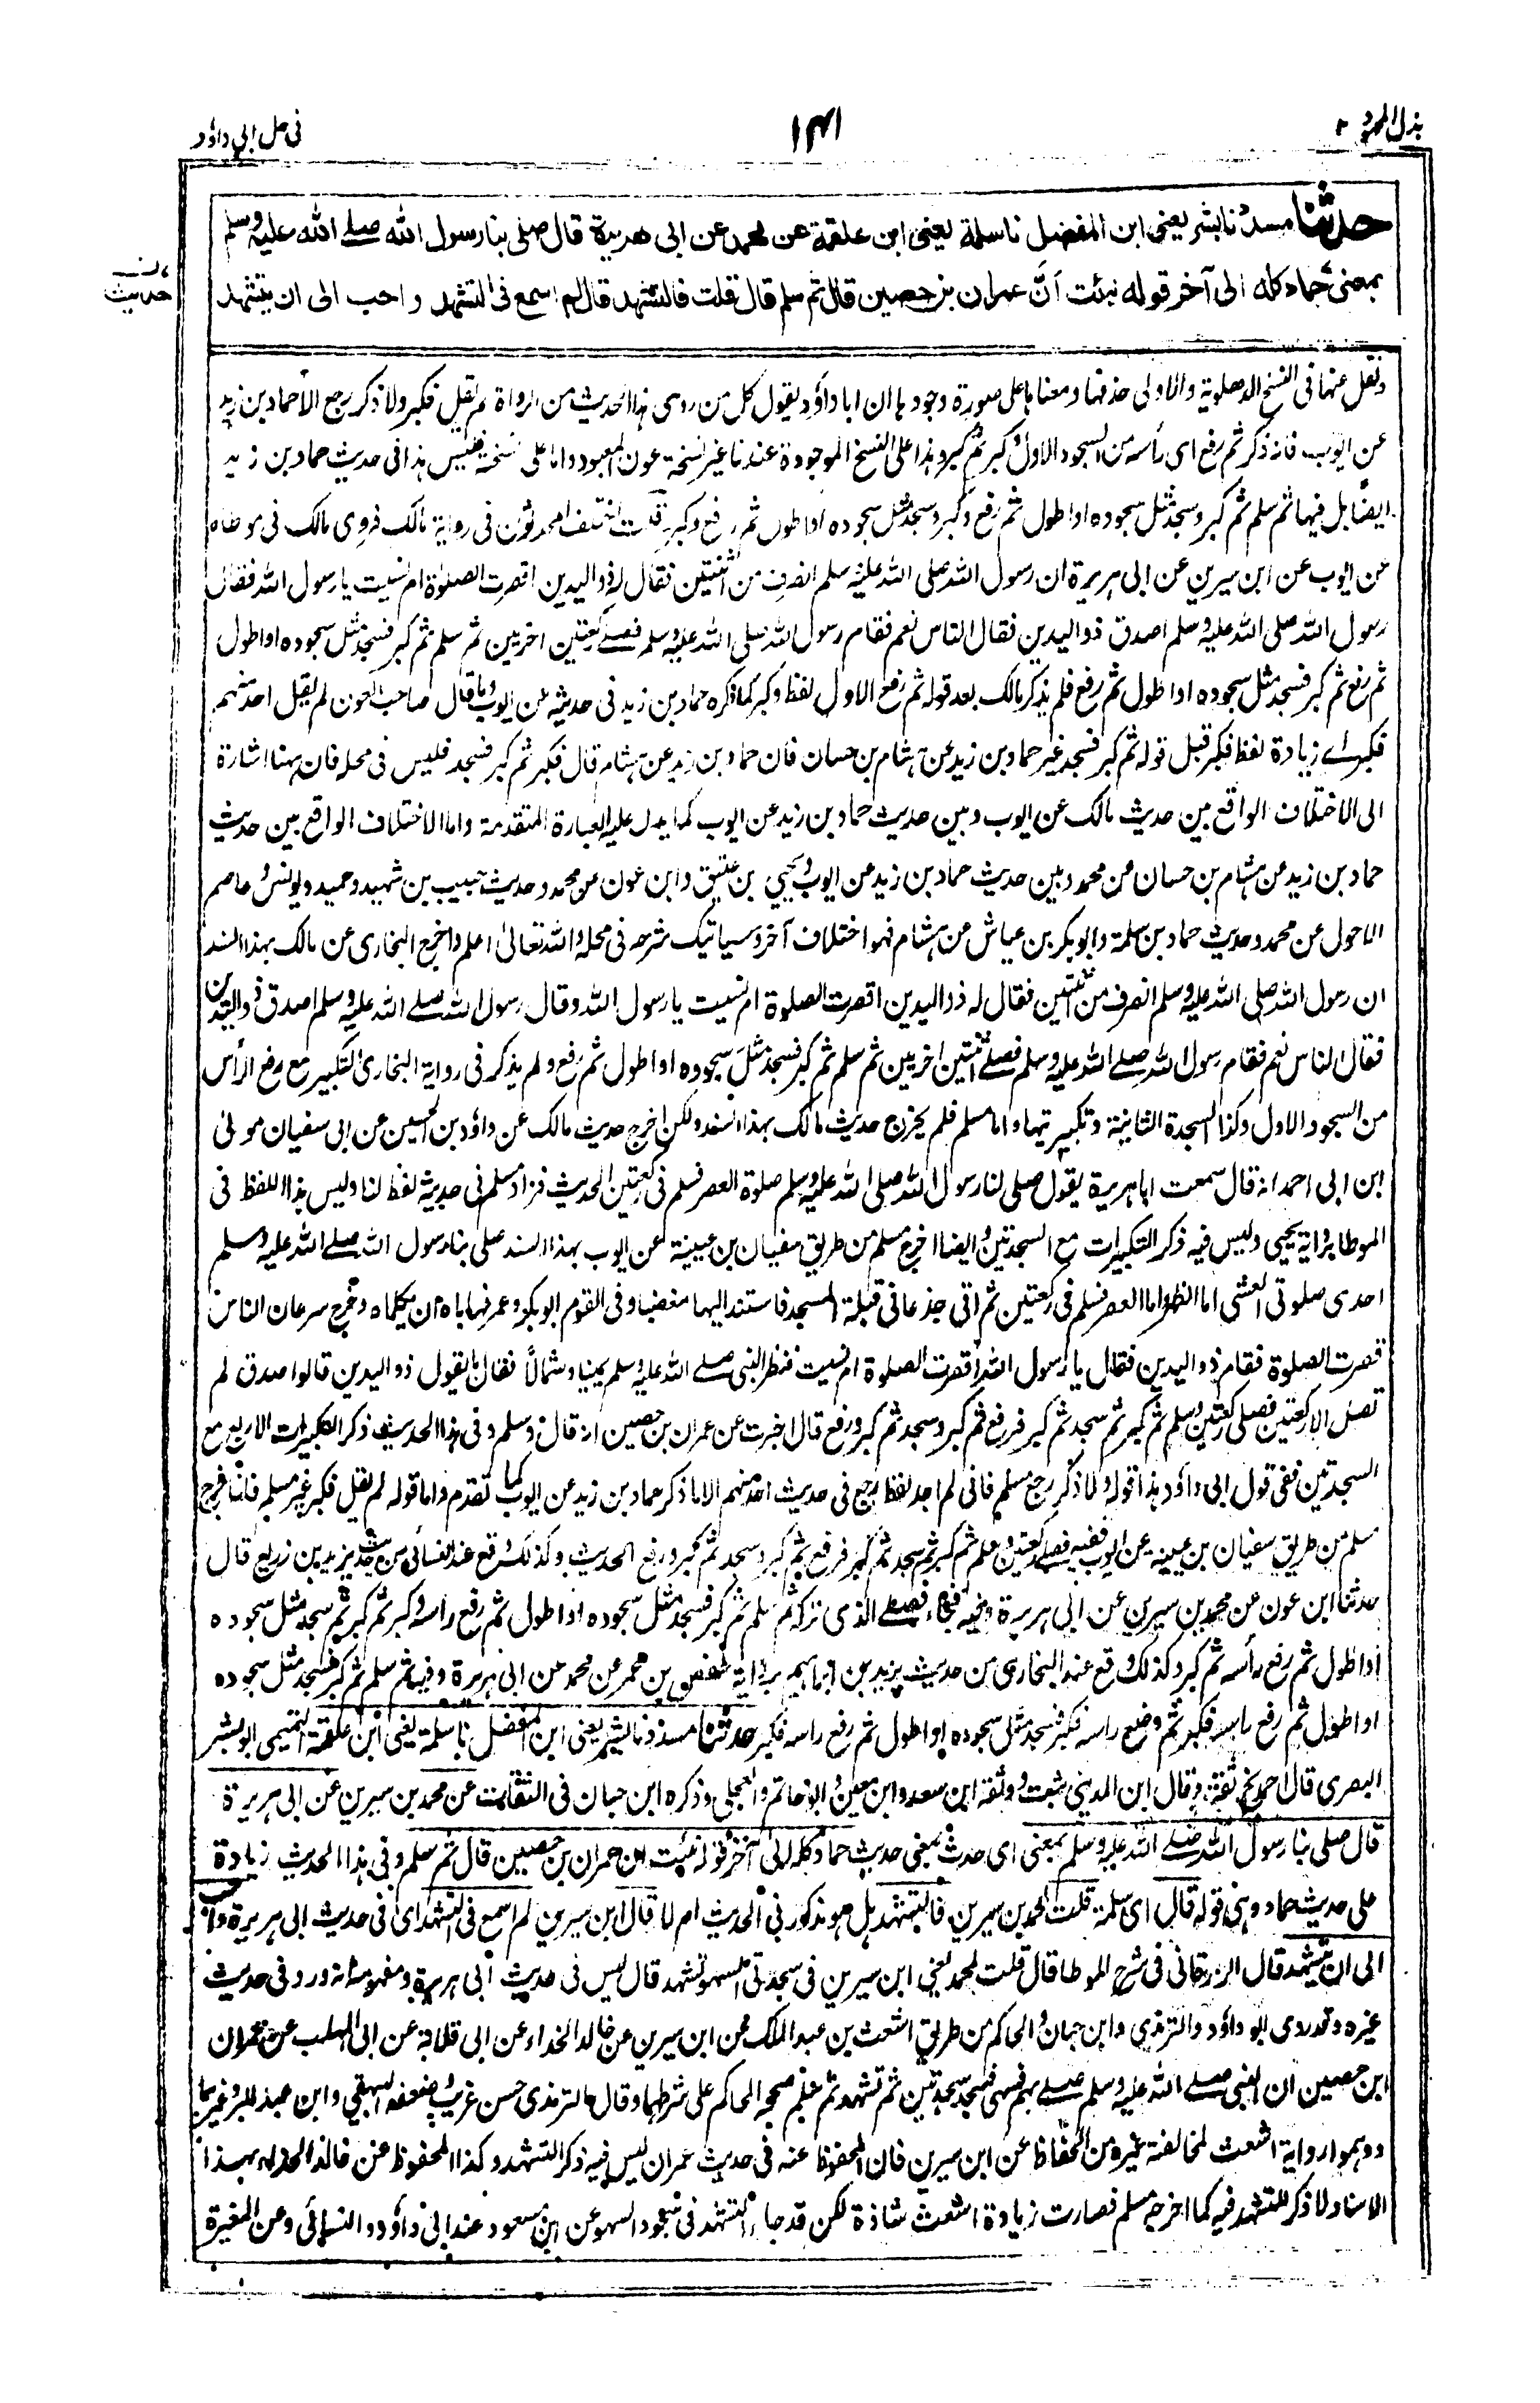 بذل المجهود ٢
١٤١
في حل ابي داؤد
حدثنا مسدد نا بشر يعني ابن المفضل نا سلمة يعني ابن علقمة عن محمد عن ابى هريرة قال صلى بنا رسول الله صلى الله عليه وسلم
بمعنى حماد كله الى آخر قوله نبئت أنّ عمران بن حصين قال ثم سلم قال قلت فالتشهد قال لم اسمع فى التشهد و احب الى ان يتشهد
حديث
ونقل عنها فى النسخ الدهلوية والاولى حذفها ومعناها على صورة وجودها ان ابا داؤد يقول كل من روى هذا الحديث من الرواة لم يقل فكبر ولا ذكر رجع الا حماد بن زيد
عن ايوب فانه ذكر ثم رفع اى رأسه من السجود الاول وكبر ثم كبر وهذا على النسخ الموجودة عندنا غير نسخة عون المعبود واما على نسخته فليس هذا فى حديث حماد بن زيد
ايضًا بل فيها ثم سلم ثم كبر وسجد مثل سجوده او اطول ثم رفع وكبر وسجد مثل سجوده او اطول ثم رفع وكبر قلت اختلف المحدثون فى رواية مالك فروى مالك فى موطاه
عن ايوب عن ابن سيرين عن ابى هريرة ان رسول الله صلى الله عليه وسلم انصرف من اثنتين فقال له ذو اليدين اقصرت الصلوة ام نسيت يا رسول الله فقال
رسول الله صلى الله عليه وسلم اصدق ذو اليدين فقال الناس نعم فقام رسول الله صلى الله عليه وسلم فصلى ركعتين اخريين ثم سلم ثم كبر فسجد مثل سجوده او اطول
ثم رفع ثم كبر فسجد مثل سجوده او اطول ثم رفع فلم يذكر مالك بعد قوله ثم رفع الاول لفظ وكبر كما ذكره حماد بن زيد فى حديثه عن ايوب وما قال صاحب العون لم يقل احد منهم
فكبر اے زيادة لفظ فكبر قبل قوله ثم كبر فسجد غير حماد بن زيد عن هشام بن حسان فان حماد بن زيد عن هشام قال فكبر ثم كبر فسجد فليس فى محله فان ههنا اشارة
الى الاختلاف الواقع بين حديث مالك عن ايوب وبين حديث حماد بن زيد عن ايوب كما يدل عليه العبارة المتقدمة واما الاختلاف الواقع بين حديث
حماد بن زيد عن هشام بن حسان عن محمد وبين حديث حماد بن زيد عن ايوب ويحيى بن عتيق وابن عون عن محمد وحديث حبيب بن شهيد وحميد ويونس وعاصم
الاحول عن محمد وحديث حماد بن سلمة وابو بكر بن عياش عن هشام فهو اختلاف آخر وسياتيك شرحه فى محله والله تعالىٰ اعلم واخرج البخارى عن مالك بهذا السند
ان رسول الله صلى الله عليه وسلم انصرف من ثنتين فقال له ذو اليدين اقصرت الصلوة ام نسيت يا رسول الله وقال رسول الله صلى الله عليه وسلم اصدق ذو اليدين
فقال الناس نعم فقام رسول الله صلى الله عليه وسلم فصلى ثنتين اخريين ثم سلم ثم كبر فسجد مثل سجوده او اطول ثم رفع ولم يذكر فى رواية البخارى التكبير مع رفع الرأس
من السجود الاول وكذا السجدة الثانية وتكبيرتها واما مسلم فلم يخرج حديث مالك بهذا السند ولكن اخرج حديث مالك عن داؤد بن الحسين عن ابى سفيان مولى
ابن ابى احمد انه قال سمعت ابا هريرة يقول صلى لنا رسول الله صلى الله عليه وسلم صلوة العصر فسلم فى ركعتين الحديث فزاد مسلم فى حديثه لفظ لنا وليس هذا اللفظ فى
الموطا برواية يحيى وليس فيه ذكر التكبيرات مع السجدتين وايضا اخرج مسلم من طريق سفيان بن عيينة عن ايوب بهذا السند صلى بنا رسول الله صلى الله عليه وسلم
احدى صلوتى العشى اما الظهر واما العصر فسلم فى ركعتين ثم اتى جذعا فى قبلة المسجد فاستند اليها مغضبا وفى القوم ابو بكر وعمر فهاباه ان يكلماه وخرج سرعان الناس
قصرت الصلوة فقام ذو اليدين فقال يا رسول الله أقصرت الصلوة ام نسيت فنظر النبى صلى الله عليه وسلم يمينا وشمالاً فقال ما يقول ذو اليدين قالوا صدق لم
تصل الا ركعتين فصلى ركعتين وسلم ثم كبر ثم سجد ثم كبر فرفع ثم كبر وسجد ثم كبر ورفع قال اخبرت عن عمران بن حصين انه قال وسلم وفى هذا الحديث ذكر التكبيرات الاربع مع
السجدتين ففى قول ابى داؤد هذا قوله ولا ذكر رجع مسلم فانى لم اجد لفظ رجع فى حديث احد منهم الا ما ذكر حماد بن زيد عن ايوب كما تقدم واما قوله لم يقل فكبر غير مسلم فانه اخرج
مسلم من طريق سفيان بن عيينه عن ايوب ففيه فصلى ركعتين وسلم ثم كبر ثم سجد ثم كبر فرفع ثم كبر وسجد ثم كبر ورفع الحديث وكذلك وقع عند النسائى من حديث يزيد بن زريع قال
حدثنا ابن عون عن محمد بن سيرين عن ابى هريرة وفيه فجاء فصلى الذى تركه ثم سلم ثم كبر فسجد مثل سجوده او اطول ثم رفع رأسه وكبر ثم كبر ثم سجد مثل سجوده
او اطول ثم رفع رأسه ثم كبر وكذلك وقع عند البخارى من حديث يزيد بن ابراهيم برواية حفص بن عمر عن محمد عن ابى هريرة وفيه ثم سلم ثم كبر فسجد مثل سجوده
او اطول ثم رفع رأسه فكبر ثم وضع رأسه فكبر فسجد مثل سجوده او اطول ثم رفع رأسه فكبر حدثنا مسدد نا بشر يعنى ابن المفضل نا سلمة يعنى ابن علقمة التميمى ابو بشر
البصرى قال احمد بخ ثقة، وقال ابن المدينى ثبت ووثقه ابن سعد وابن معين وابو حاتم والعجلى وذكره ابن حبان فى الثقات عن محمد بن سيرين عن ابى هريرة
قال صلى بنا رسول الله صلى الله عليه وسلم بمعنى اى حدث بمعنى حديث حماد كله الى آخر قوله نبئت ان عمران بن حصين قال ثم سلم وفى هذا الحديث زيادة
على حديث حماد وهى قوله قال اى سلمة قلت لمحمد بن سيرين فالتشهد هل هو مذكور فى الحديث ام لا قال ابن سيرين لم اسمع فى التشهد اى فى حديث ابى هريرة واحب
الى ان يتشهد قال الزرقانى فى شرح الموطا قال قلت لمحمد يعنى ابن سيرين فى سجدتى السهو تشهد قال ليس فى حديث ابى هريرة ومفهومه انه ورد فى حديث
غيره وقد روى ابو داؤد والترمذى وابن حبان والحاكم من طريق اشعث بن عبد الملك عن ابن سيرين عن خالد الحذاء عن ابى قلابة عن ابى المهلب عن عمران
ابن حصين ان النبى صلى الله عليه وسلم صلى بهم فسهى فسجد سجدتين ثم تشهد ثم سلم صححه الحاكم على شرطهما وقال الترمذى حسن غريب وضعفه البيهقى وابن عبد البر وغيرهما
ووهموا رواية اشعث لمخالفة غيره من الحفاظ عن ابن سيرين فان المحفوظ عنه فى حديث عمران ليس فيه ذكر التشهد وكذا المحفوظ عن خالد الحذاء بهذا
الاسناد لا ذكر للتشهد فيه كما اخرجه مسلم فصارت زيادة اشعث شاذة لكن قد جاء التشهد فى سجود السهو عن ابن مسعود عند ابى داؤد والنسائى وعن المغيرة